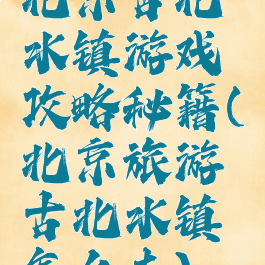 北京古北
水镇游戏
攻略秘籍(
北京旅游
古北水镇